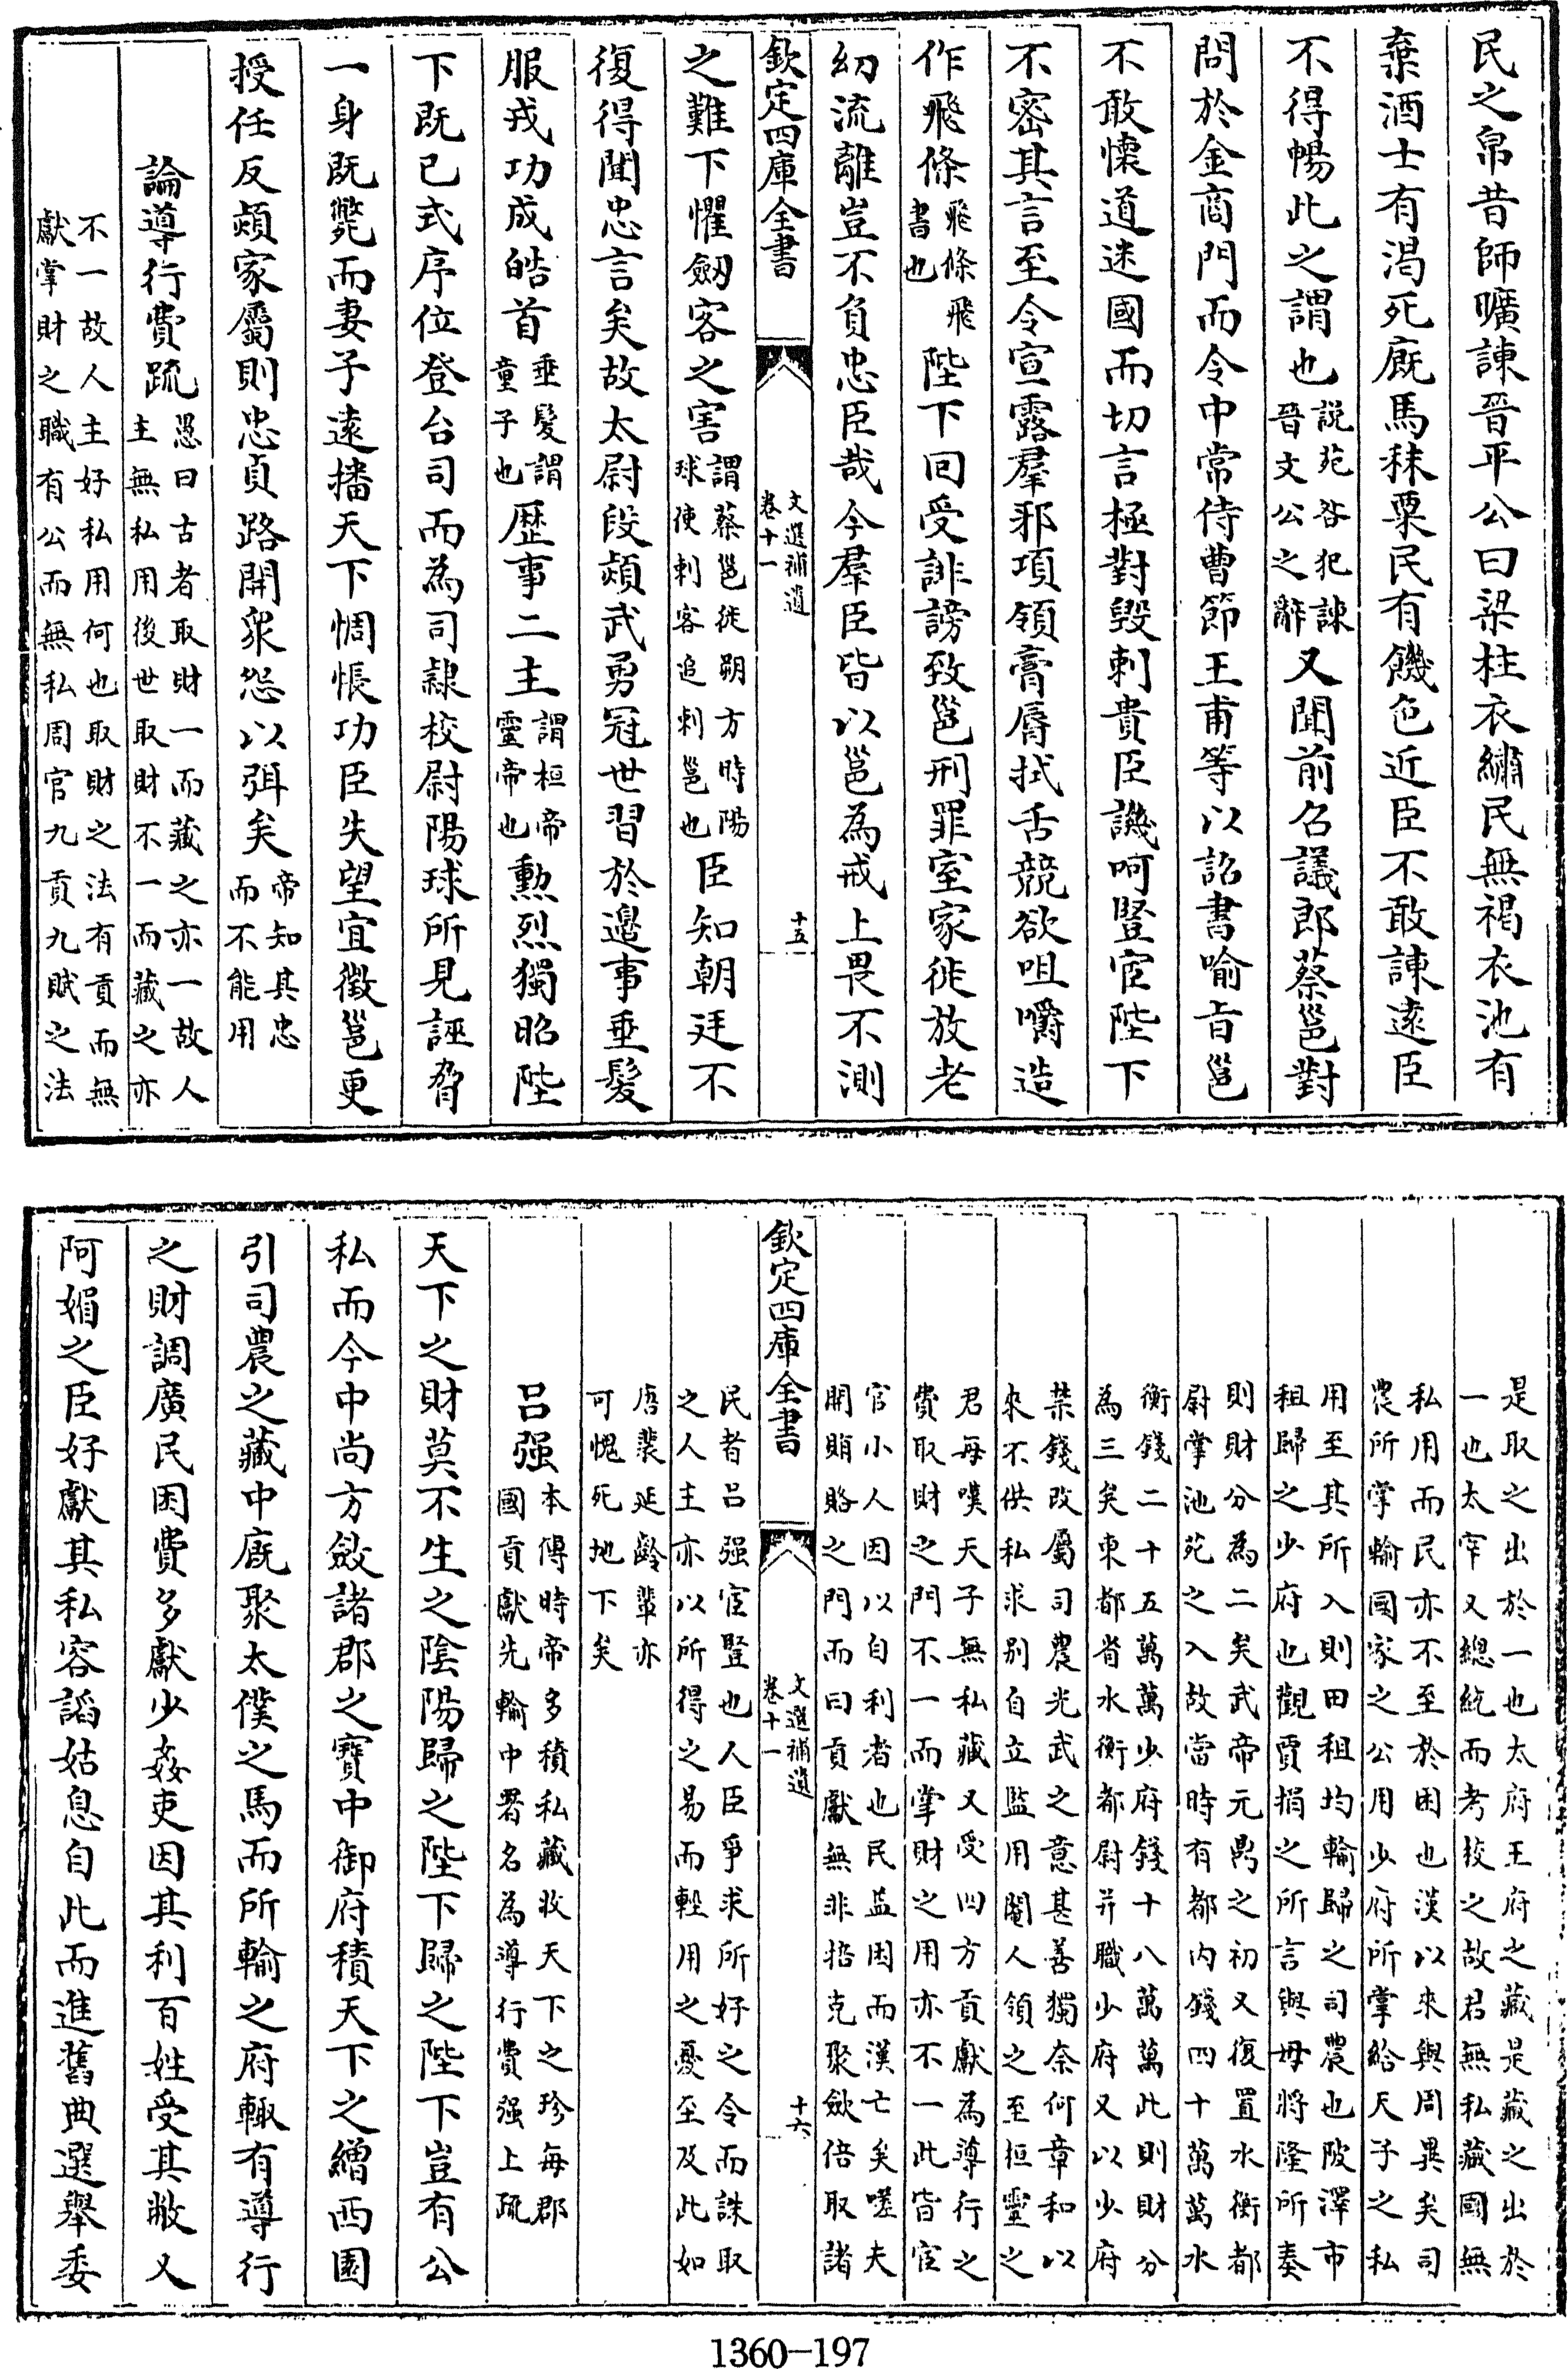 民之帛昔師曠諫晉平公曰梁柱衣繡民無褐衣池有
棄酒士有渴死廐馬秣粟民有饑色近臣不敢諫遠臣
不得暢此之謂也說苑咎犯諫晉文公之辭又聞前召議郎蔡邕對
問於金商門而令中常侍曹節王甫等以詔書喻旨邕
不敢懷道迷國而切言極對毀刺貴臣譏呵豎宦陛下
不密其言至令宣露羣邪項領膏脣拭舌競欲咀嚼造
作飛條飛條飛書也陛下回受誹謗致邕刑罪室家徙放老
幼流離豈不負忠臣哉今羣臣皆以邕為戒上畏不測
欽定四庫全書
文選補遺
卷十一
十五
之難下懼劔客之害謂蔡邕徙朔方時陽球使刺客追刺邕也臣知朝廷不
復得聞忠言矣故太尉段熲武勇冠世習於邊事垂髮
服戎功成皓首垂髮謂童子也歷事二主謂桓帝靈帝也勲烈獨昭陛
下既已式序位登台司而為司隸校尉陽球所見誣脅
一身既斃而妻子遠播天下惆悵功臣失望宜徵邕更
授任反熲家屬則忠貞路開衆怨以弭矣帝知其忠而不能用
論導行費疏愚曰古者取財一而藏之亦一故人
主無私用後世取財不一而藏之亦
不一故人主好私用何也取財之法有貢而無
獻掌財之職有公而無私周官九貢九賦之法
是取之出於一也太府王府之藏是藏之出於
一也太宰又總統而考校之故君無私藏國無
私用而民亦不至於困也漢以來與周異矣司
農所掌輸國家之公用少府所掌給天子之私
用至其所入則田租均輸歸之司農也陂澤市
租歸之少府也觀賈捐之所言與毋將隆所奏
則財分為二矣武帝元鼎之初又復置水衡都
尉掌池苑之入故當時有都內錢四十萬萬水
衡錢二十五萬萬少府錢十八萬萬此則財分
為三矣東都省水衡都尉并職少府又以少府
禁錢改屬司農光武之意甚善獨奈何章和以
來不供私求别自立監用閹人領之至桓靈之
君每嘆天子無私藏又受四方貢獻為導行之
費取財之門不一而掌財之用亦不一此皆宦
官小人因以自利者也民益困而漢亡矣嗟夫
開賄賂之門而曰貢獻無非掊克聚歛倍取諸
欽定四庫全書
文選補遺
卷十一
十六
民者呂强宦豎也人臣爭求所好之令而誅取
之人主亦以所得之易而輕用之憂至及此如
唐裴延齡輩亦
可愧死地下矣
呂强本傳時帝多積私藏收天下之珍每郡國貢獻先輸中署名為導行費强上疏
天下之財莫不生之陰陽歸之陛下歸之陛下豈有公
私而今中尚方斂諸郡之寶中御府積天下之繒西園
引司農之藏中廐聚太僕之馬而所輸之府輙有導行
之財調廣民困費多獻少姦吏因其利百姓受其敝又
阿媚之臣好獻其私容謟姑息自此而進舊典選舉委
1360-197